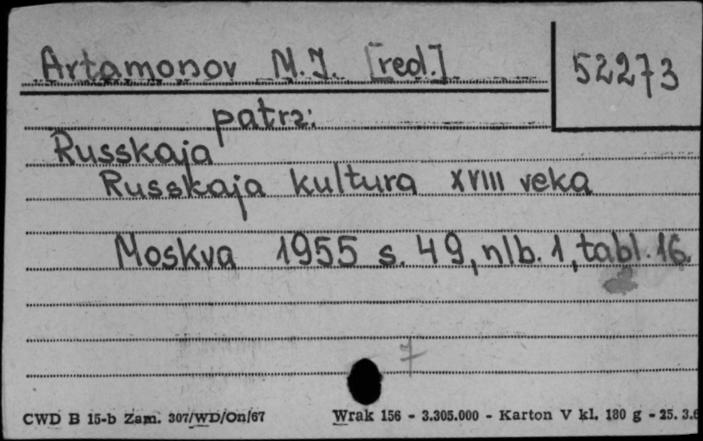 Artamonov M.J. [red.]
52273
patrz:
Russkaja
Russkaja kultura XVIII veka
Moskva 1955 s. 49, nlb. 1, tabl. 16.
7
CWD B 15-b Zam. 307/WD/On/67 Wrak 156 - 3.305.000 - Karton V kl. 180 g - 25. 3.6